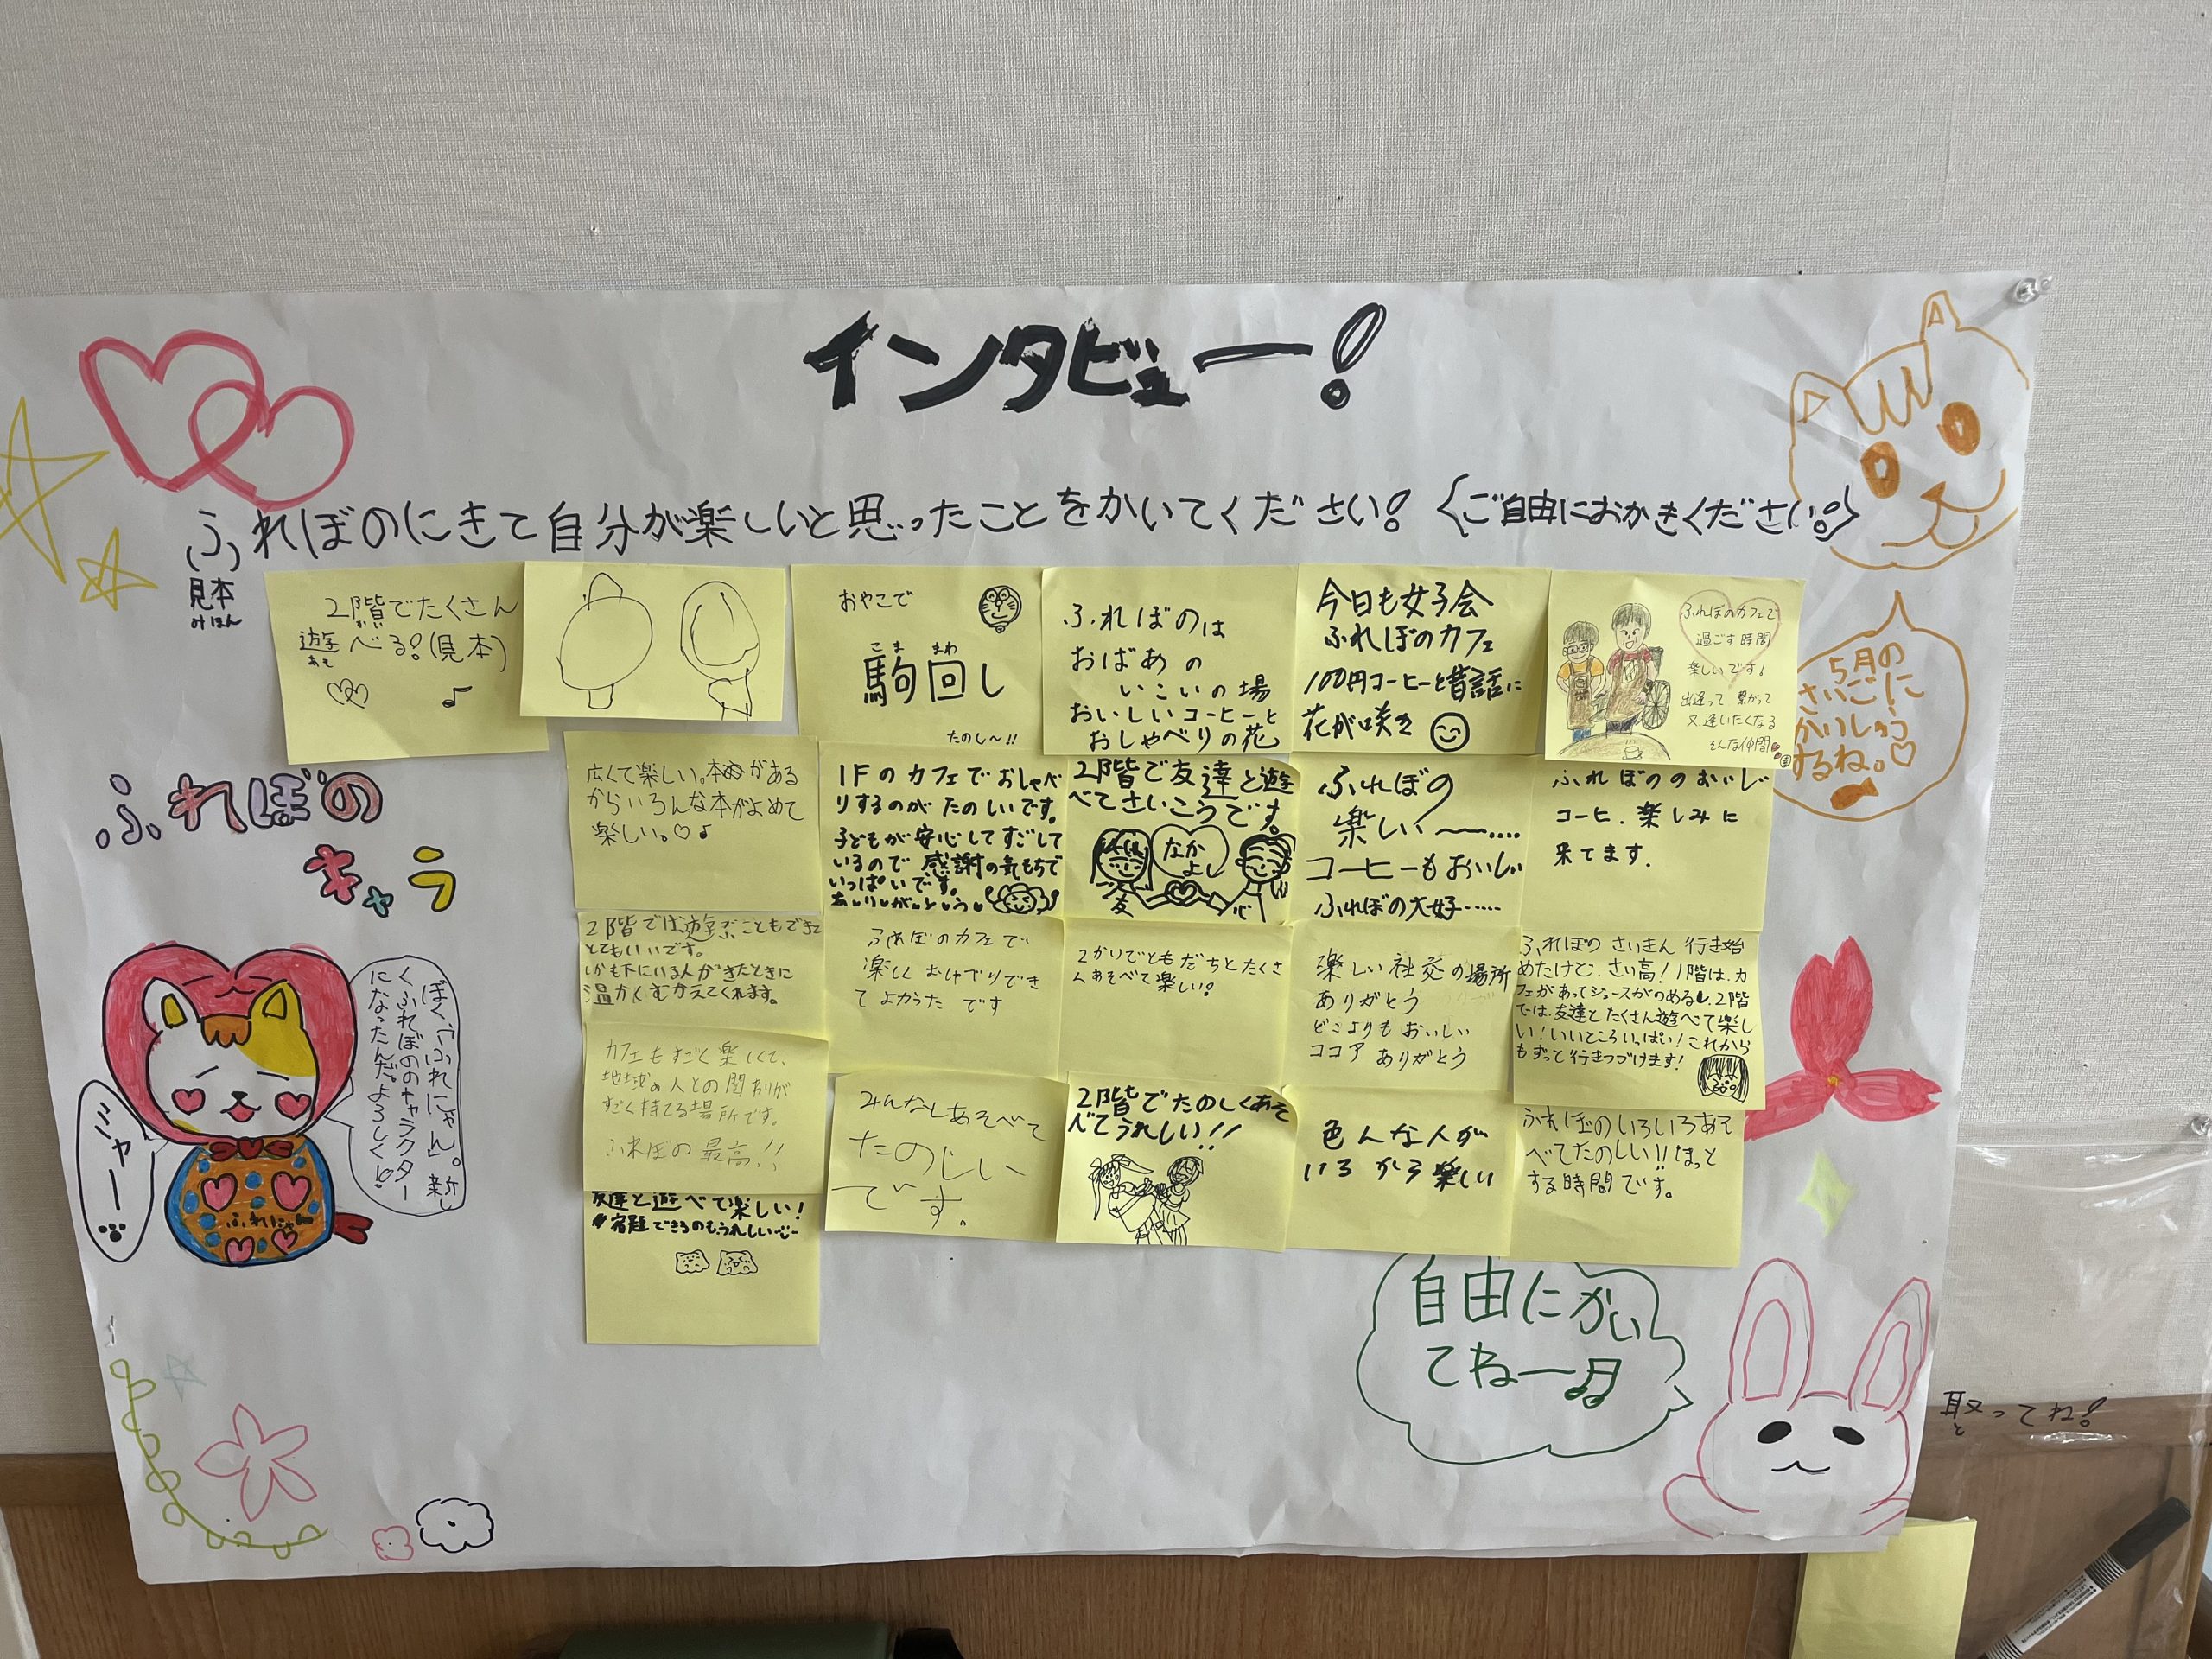 インタビュー!
ふれぼのにきて自分が楽しいと思ったことをかいてください!〈ご自由におかきください!〉
見本
みほん
2階でたくさん
かい
遊べる!(見本)
あそ
おやこで
こま まわ
駒回し
たのし〜!!
ふれぼのは
おばあの
いこいの場
おいしいコーヒーと
おしゃべりの花
今日も女子会
ふれぼのカフェ
100円コーヒーと昔話に
花が咲き
ふれぼのカフェで
過ごす時間
楽しいです!
出逢って 繋がって
又、逢いたくなる
そんな仲間
5月の
さいごに
かいしゅう
するね。♡
広くて楽しい。本がある
からいろんな本がよめて
楽しい。♡♪
1Fのカフェでおしゃべ
りするのが たのしいです。
子どもが安心してすごして
いるので感謝の気もちで
いっぱいです。
あ・り・が・と・う・
2階で友達と遊
べてさいこうです。
なか
よし
友
心
ふれぼの
楽しい〜〜....
コーヒーもおいしい
ふれぼの大好.....
ふれぼののおいしい
コーヒ.楽しみに
来てます.
ふれぼの
キャラ
ぼく「ふれにゃん」。新し
くふれぼののキャラクター
になったんだ。よろしく!♡
ミャー
ふれにゃん
2階では遊ぶこともできて
とてもいいです。
しかも下にいる人がきたときに
温かくむかえてくれます。
ふれぼのカフェで
楽しくおしゃべりでき
てよかった です
2かいでともだちとたくさ
んあそべて楽しい!
楽しい社交の場所
ありがとう
どこよりもおいしい
ココア ありがとう
ふれぼの さいきん 行き始
めたけど、さい高!1階は、カ
フェがあってジュースがのめるし、2階
では、友達とたくさん遊べて楽し
い!いいところいっぱい!これから
もずっと行きつづけます!
カフェもすごく楽しくて、
地域の人との関わりが
すごく持てる場所です。
ふれぼの最高!!
みんなとあそべて
たのしい
です。
2階でたのしくあそ
べてうれしい!!
色んな人が
いるから楽しい
ふれぼのいろいろあそ
べてたのしい!!ほっと
する時間です。
友達と遊べて楽しい!
宿題できるのもうれしい
自由にかい
てねー♫
取ってね!
と